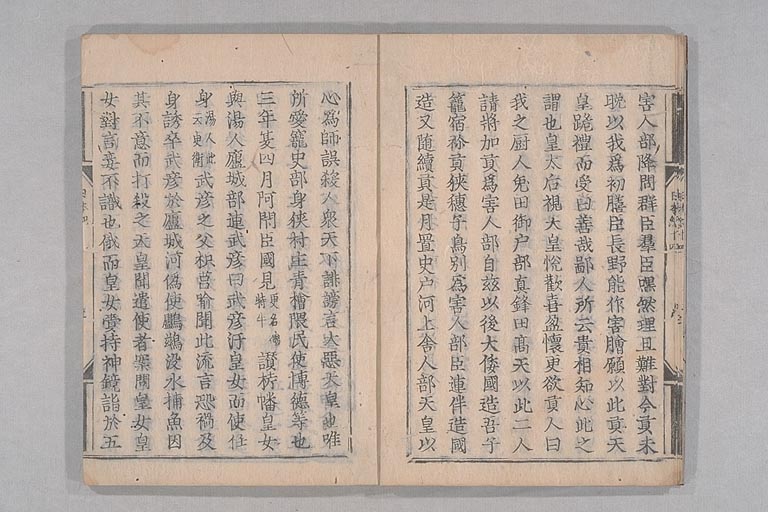 害人部降問群臣羣臣嘿然理且難對今貢未
晩以我爲初膳臣長野能作害膾願以此貢天
皇跪禮而受曰善哉鄙人所云貴相知心此之
謂也皇太后視天皇悅歡喜盈懷更欲貢人曰
我之厨人兔田御戸部真鋒田高天以此二人
請將加貢爲害人部自茲以後大倭國造吾子
籠宿祢貢狹穗子鳥別爲害人部臣連伴造國
造又随續貢是月置史戸河上舎人部天皇以
心爲師誤殺人衆天下誹謗言大惡天皇也唯
所愛寵史部身狹村主青檜隈民使博德等也
三年夏四月阿閇臣國見更名磯特牛讃栲幡皇女
與湯人廬城部連武彦曰武彦汙皇女而使任
身湯人此云更衞武彦之父枳莒喩聞此流言恐禍及
身誘卒武彦於廬城河偽使鸕鷀没水捕魚因
其不意而打殺之天皇聞遣使者案問皇女皇
女對言妾不識也俄而皇女賷持神鏡詣於五